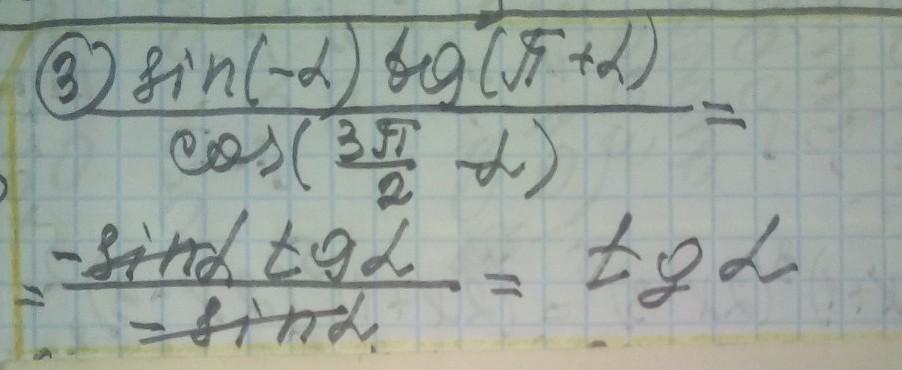 ③ sin(-α) tg(π+α)
cos(3π/2 -α) =
= -sinα tgα / -sinα = tgα